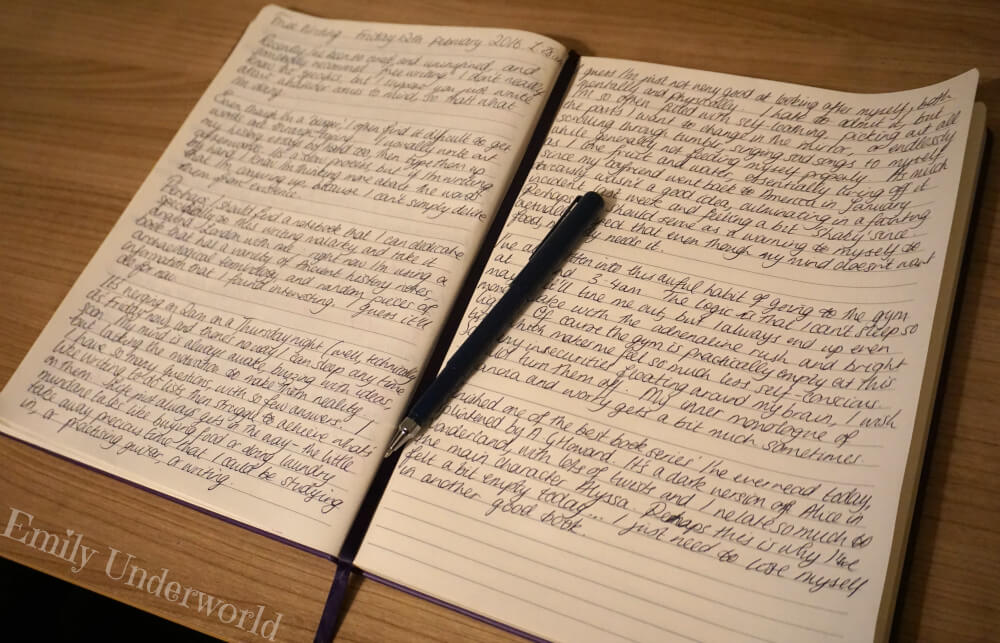 Free Writing Friday 12th February 2016 2.
Recently I've been so quiet and uninspired, and
free writing. I don't really
know the specifics but I suppose you just write
about whatever comes to mind, so that's what
I'm doing.
Even though I'm a 'blogger' I often find it difficult to get
words out through typing. I usually write out
my history essays by hand too, then type them up
afterwards. It's a slow process but if I'm writing
by hand, I end up thinking more about the words
that I'm conjuring up because I can't simply delete
their existence.
Perhaps I should find a notebook that I can dedicate
specifically to this writing malarky and take it
around London with me. right now I'm using a
book that has a variety of Ancient history notes,
archaeological terminology and random pieces of
information that I found interesting. I guess it'll
do for now.
It's nearing on 2am on a Thursday night (well, technically
it's Friday now) and there's no way I can sleep any time
soon. My mind is always awake, buzzing with ideas,
but lacking the motivation to make them reality. I
have so many questions, with so few answers. I
like writing to do lists then struggle to achieve what's
on them. Life just always gets in the way - the little
mundane tasks like buying food or doing laundry
take away precious time that I could be studying
in, or practising guitar, or writing.
I guess I'm just not very good at looking after myself, both
mentally and physically. I hate to admit it but
I'm so often filled with self-loathing, picking out all
the parts I want to change in the mirror, or endlessly
scrolling through tumblr singing sad songs to myself
while generally not feeding myself properly. As much
as I love fruit and water, essentially living off it
since my boyfriend went back to America in January
obviously wasn't a good idea, culminating in a fainting
incident last week and feeling a bit 'shaky' since.
Perhaps should serve as a warning to myself to
fact that even though my mind doesn't want
food, my needs it.
I've into this awful habit of going to the gym
at 3-4am. The logic is that I can't sleep so
may it'll tire me out, but I always end up even
more awake with the adrenaline rush and bright
lights. Of course the gym is practically empty at this
which makes me feel so much less self-conscious.
my insecurities floating around my brain, I wish
I could turn them off. My inner monologue of
and worry gets a bit much sometimes.
I finished one of the best book series' I've ever read today,
Splintered by A G Howard. It's a dark version of Alice in
Wonderland, with lots of twists and I relate so much to
the main character Alyssa. Perhaps this is why I've
felt a bit empty today... I just need to lose myself
in another good book.
Emily Underworld